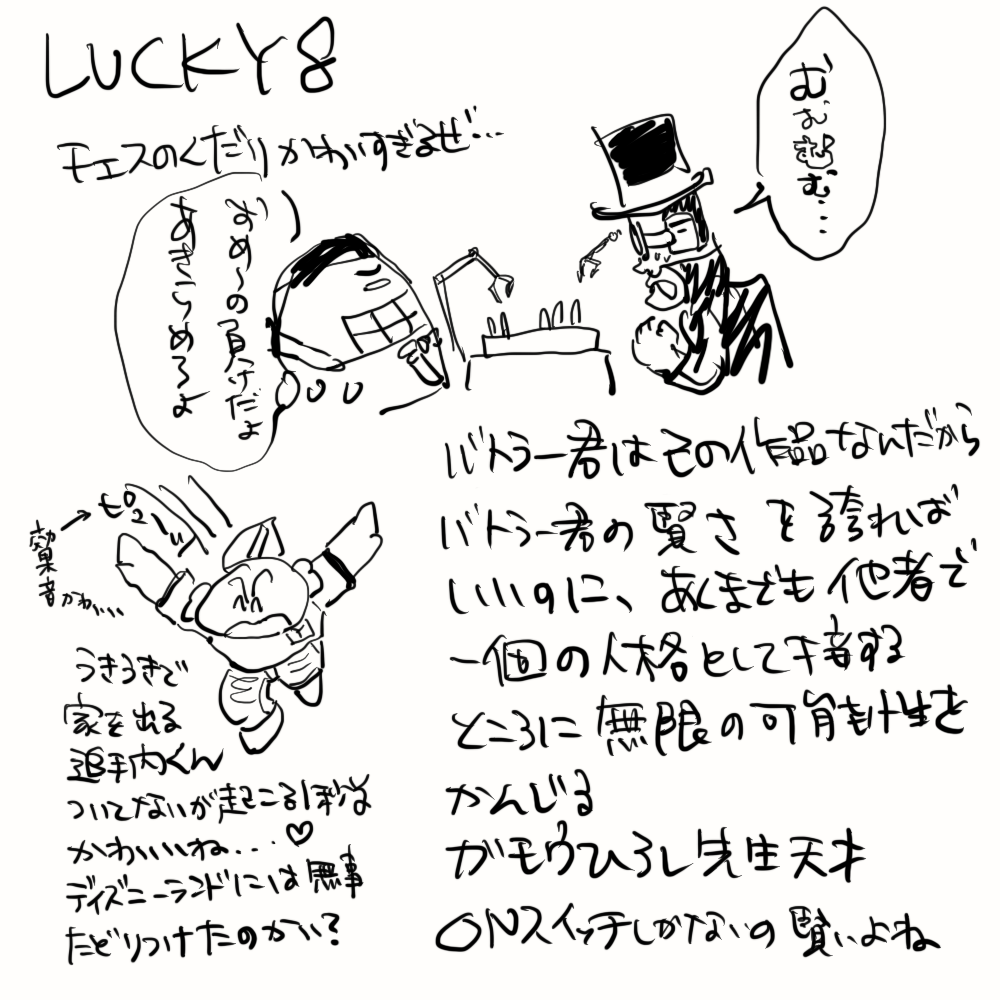 LUCKY8
チェスのくだりかわいすぎるぜ…
むむむむ…
おめ〜の負けだよ
あきらめろよ
バトラー君はその作品なんだから
バトラー君の賢さを誇れば
いいのに、あくまでも他者で
一個の人格として接する
ところに無限の可能性を
かんじる
ガモウひろし先生天才
ONスイッチしかないの賢いよね
ピューッ
効果音かわいい
うきうきで
家を出る
追手内くん
ついてないが起こる1秒前
かわいいね…♡
ディズニーランドには無事
たどりつけたのかい?